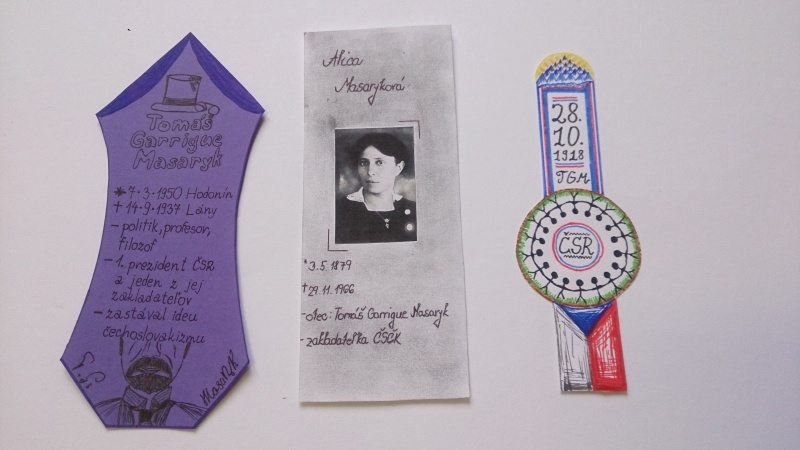 Tomáš
Garrigue
Masaryk
* 7.3.1950 Hodonín
† 14.9.1937 Lány
- politik, profesor,
filozof
- 1. prezident ČSR
a jeden z jej
zakladateľov
- zastával ideu
čechoslovakizmu
Alica
Masaryková
* 3.5.1879
† 29.11.1966
- otec: Tomáš Garrigue Masaryk
- zakladateľka ČSČK
28.
10.
1918
TGM
ČSR